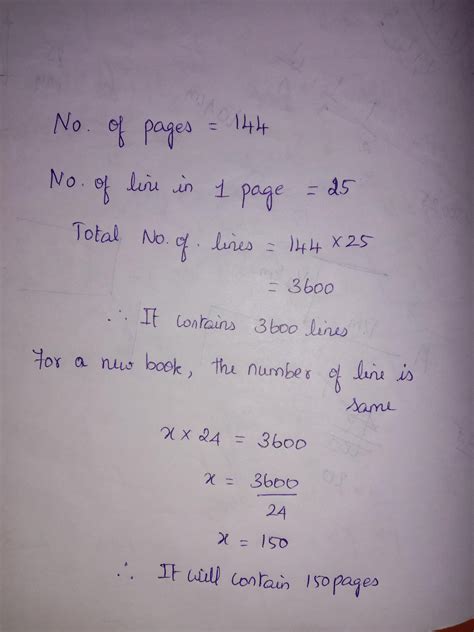 No. of pages = 144
No. of line in 1 page = 25
Total No. of. lines = 144 × 25
= 3600
∴ It contains 3600 lines
For a new book, the number of line is
same
x × 24 = 3600
x = 3600
24
x = 150
∴ It will contain 150 pages